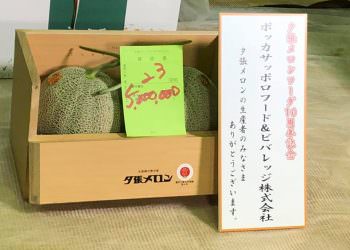 23
5,000,000
夕張メロン
夕張メロンソーダ10周年記念
ポッカサッポロフード&ビバレッジ株式会社
夕張メロンの生産者のみなさま
ありがとうございます。